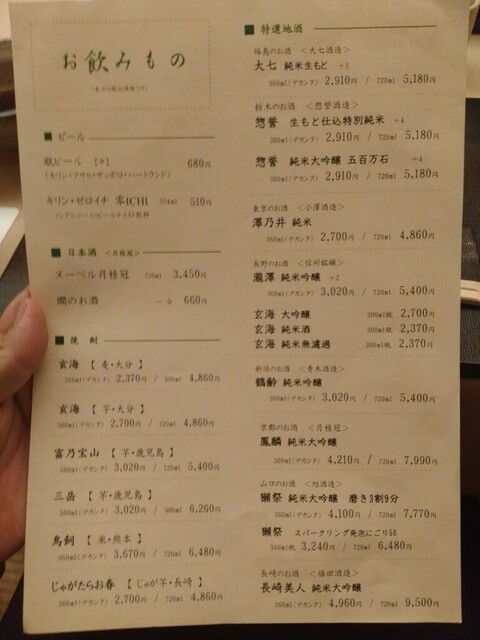 お飲みもの
■ ビール
瓶ビール 【中】 680円
(キリン・アサヒ・サッポロ・ハートランド)
キリン・ゼロイチ 零ICHI 334ml 510円
ノンアルコールビールテイスト飲料
■ 日本酒 <月桂冠>
ヌーベル月桂冠 720ml 3,450円
燗のお酒 一合 660円
■ 焼酎
玄海 【 麦・大分 】
360ml(デカンタ) 2,370円 / 900ml 4,860円
玄海 【 芋・大分 】
360ml(デカンタ) 2,700円 / 720ml 4,860円
富乃宝山 【 芋・鹿児島 】
360ml(デカンタ) 3,020円 / 720ml 5,400円
三岳 【 芋・鹿児島 】
360ml(デカンタ) 3,020円 / 900ml 6,260円
鳥飼 【 米・熊本 】
360ml(デカンタ) 3,670円 / 720ml 6,480円
じゃがたらお春 【 じゃが芋・長崎 】
360ml(デカンタ) 2,700円 / 720ml 4,860円
■ 特選地酒
福島のお酒 <大七酒造>
大七 純米生もと +3
360ml(デカンタ) 2,910円 / 720ml 5,180円
栃木のお酒 <惣誉酒造>
惣誉 生もと仕込特別純米 +4
360ml(デカンタ) 2,910円 / 720ml 5,180円
惣誉 純米大吟醸 五百万石 +4
360ml(デカンタ) 2,910円 / 720ml 5,180円
東京のお酒 <小澤酒造>
澤乃井 純米
360ml(デカンタ) 2,700円 / 720ml 4,860円
長野のお酒 <信州銘醸>
瀧澤 純米吟醸 +2
360ml(デカンタ) 3,020円 / 720ml 5,400円
玄海 大吟醸 300ml瓶 2,700円
玄海 純米酒 300ml瓶 2,370円
玄海 純米無濾過 300ml瓶 2,370円
新潟のお酒 <青木酒造>
鶴齢 純米吟醸
360ml(デカンタ) 3,020円 / 720ml 5,400円
京都のお酒 <月桂冠>
鳳麟 純米大吟醸
360ml(デカンタ) 4,210円 / 720ml 7,990円
山口のお酒 <旭酒造>
獺祭 純米大吟醸 磨き3割9分
360ml(デカンタ) 4,100円 / 720ml 7,770円
獺祭 スパークリング発泡にごり50
360ml瓶 3,240円 / 720ml 6,480円
長崎のお酒 <福田酒造>
長崎美人 純米大吟醸
360ml(デカンタ) 4,960円 / 720ml 9,500円